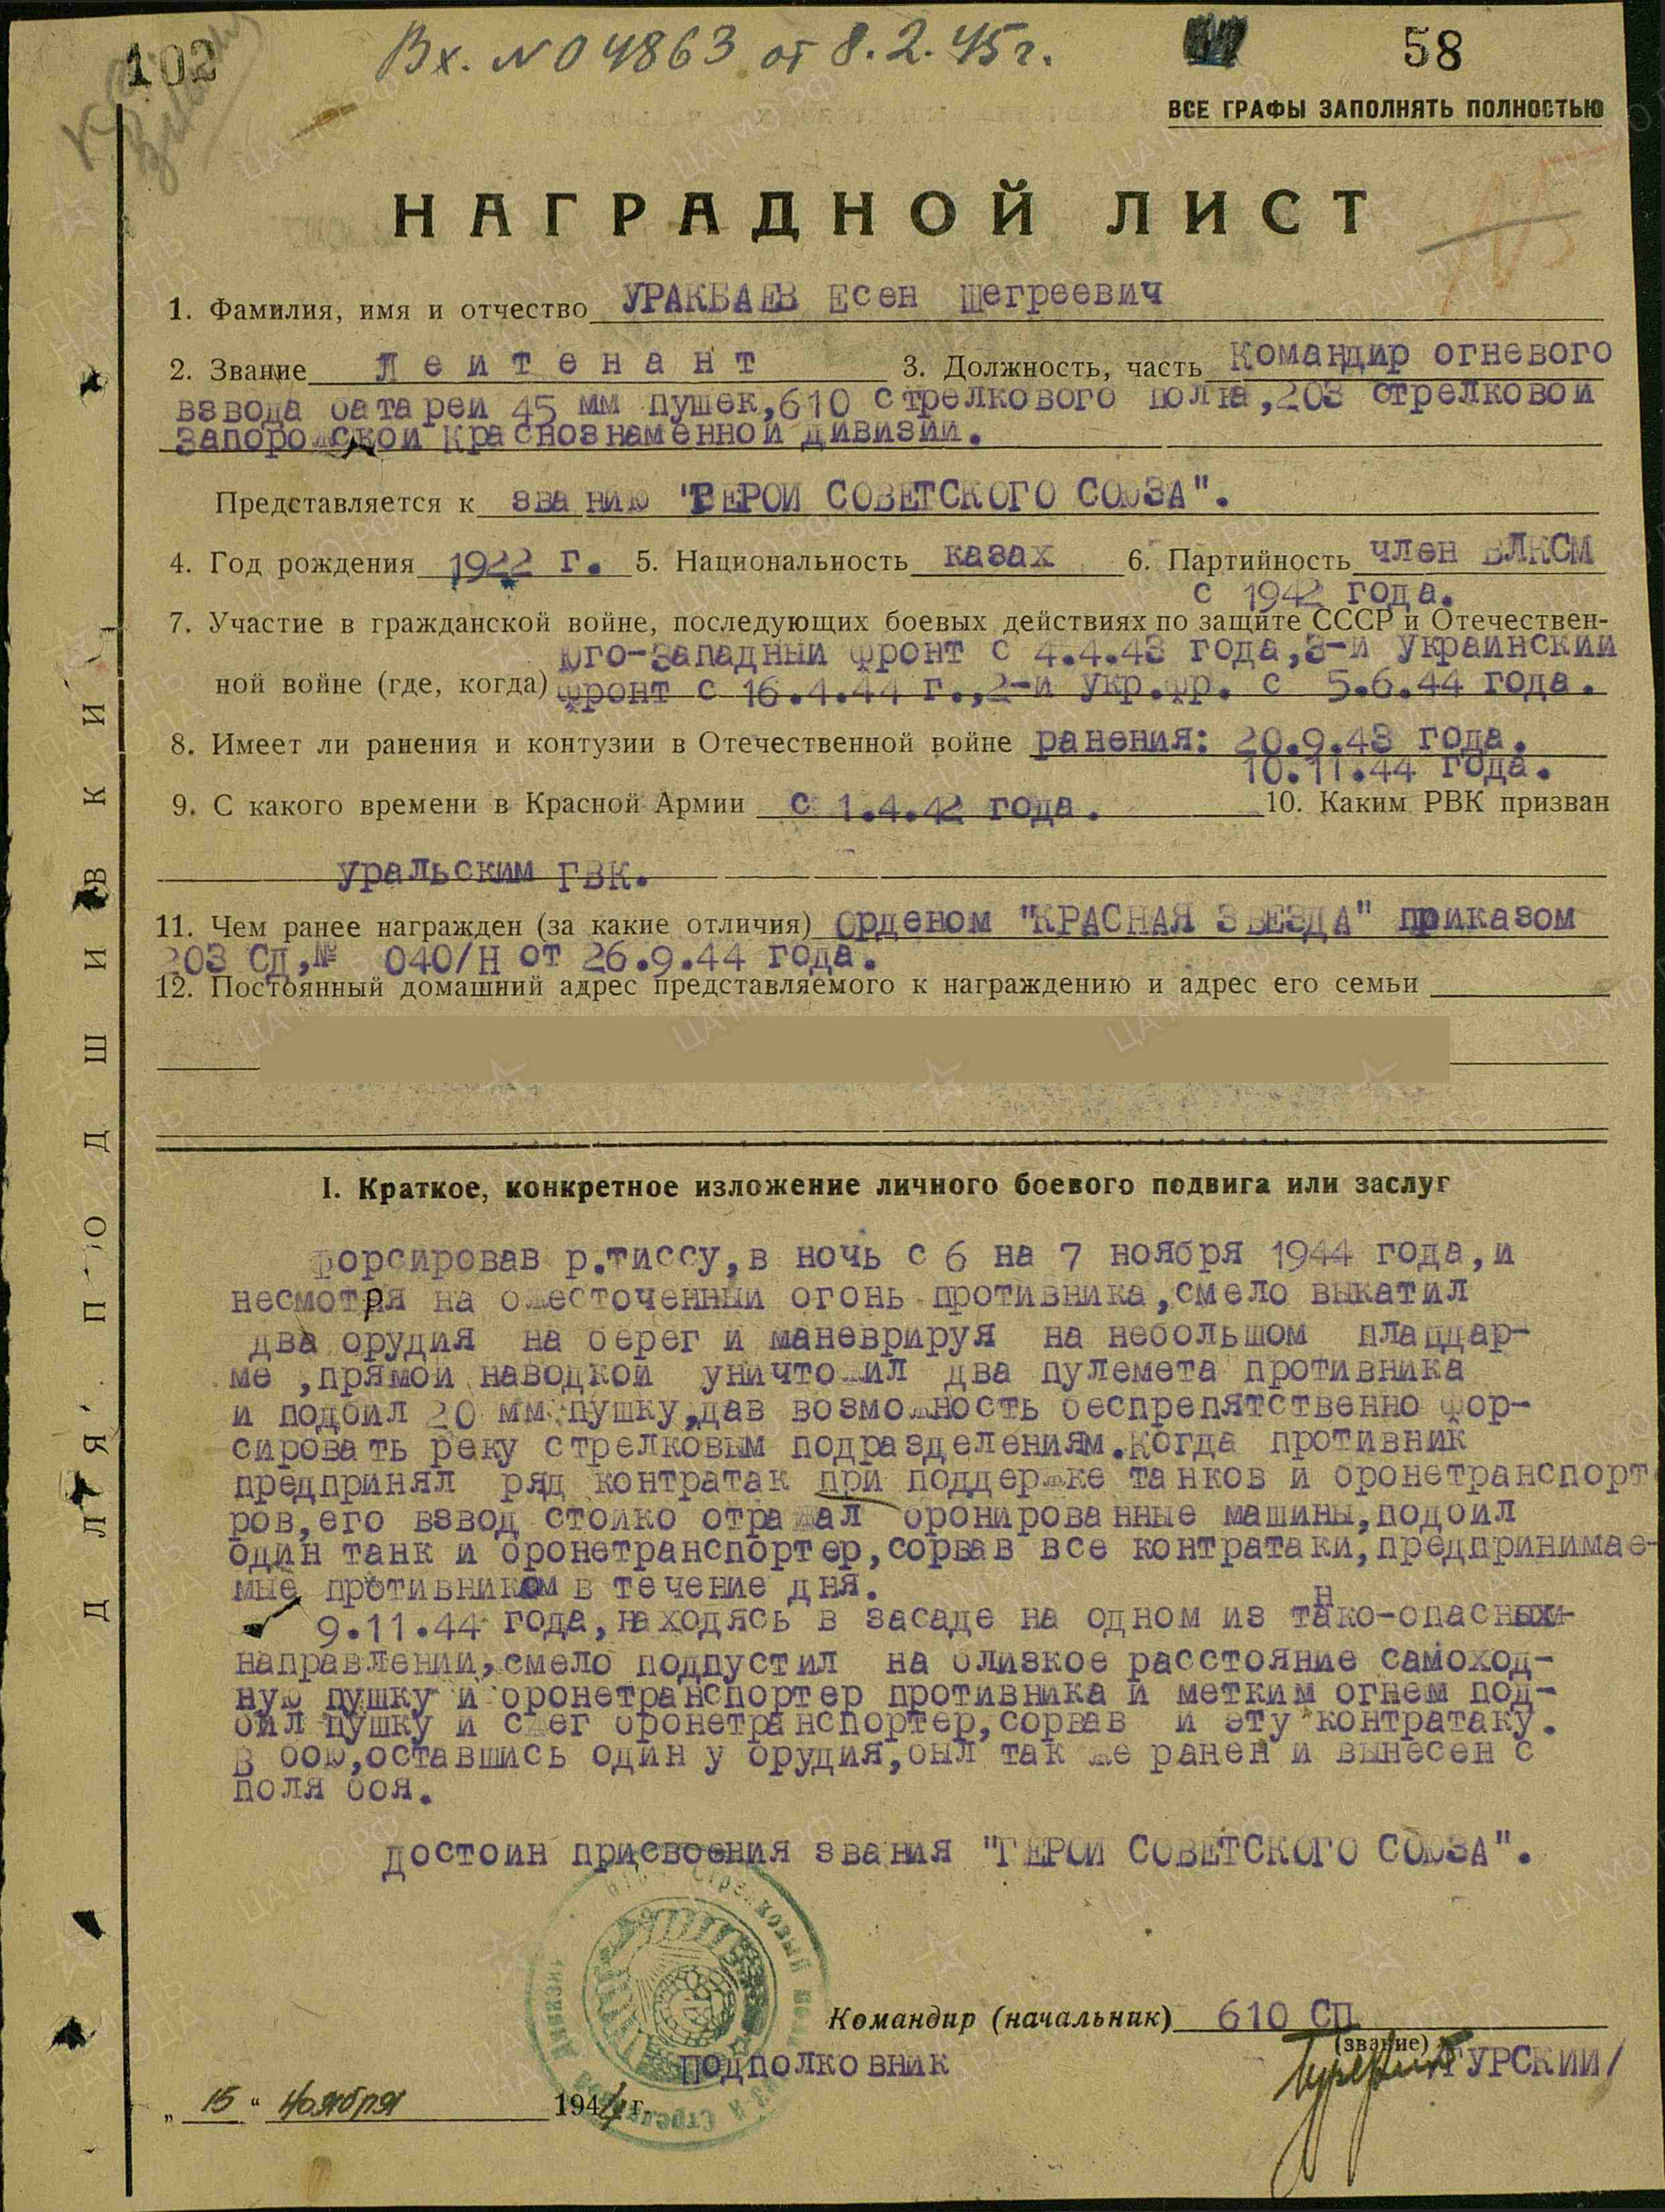 102
Вх. №04863 от 8.2.45г.
58
ВСЕ ГРАФЫ ЗАПОЛНЯТЬ ПОЛНОСТЬЮ
НАГРАДНОЙ ЛИСТ
1. Фамилия, имя и отчество УРАКБАЕВ Есен Шегреевич
2. Звание Лейтенант 3. Должность, часть Командир огневого
взвода батареи 45 мм пушек,610 стрелкового полка,203 стрелковой
Запорожской Краснознаменной дивизии.
Представляется к званию "ГЕРОЙ СОВЕТСКОГО СОЮЗА".
4. Год рождения 1922 г. 5. Национальность казах 6. Партийность член ВЛКСМ
с 1942 года.
7. Участие в гражданской войне, последующих боевых действиях по защите СССР и Отечествен-
Юго-Западный фронт с 4.4.43 года,3-й Украинский
ной войне (где, когда) фронт с 16.4.44 г.,2-й Укр.фр. с 5.6.44 года.
8. Имеет ли ранения и контузии в Отечественной войне ранения: 20.9.43 года.
10.11.44 года.
9. С какого времени в Красной Армии с 1.4.42 года. 10. Каким РВК призван
Уральским ГВК.
11. Чем ранее награжден (за какие отличия) Орденом "КРАСНАЯ ЗВЕЗДА" приказом
203 СД,№ 040/Н от 26.9.44 года.
12. Постоянный домашний адрес представляемого к награждению и адрес его семьи
I. Краткое, конкретное изложение личного боевого подвига или заслуг
Форсировав р.Тиссу,в ночь с 6 на 7 ноября 1944 года,и
несмотря на ожесточенный огонь противника,смело выкатил
два орудия на берег и маневрируя на небольшом плацдар-
ме ,прямой наводкой уничтожил два пулемета противника
и подбил 20 мм пушку,дав возможность беспрепятственно фор-
сировать реку стрелковым подразделениям.Когда противник
предпринял ряд контратак при поддержке танков и бронетранспорт
ров,его взвод стойко отражал бронированные машины,подбил
один танк и бронетранспортер,сорвав все контратаки,предпринимае-
мые противником в течение дня.
9.11.44 года,находясь в засаде на одном из танко-опасных
направлений,смело подпустил на близкое расстояние самоход-
ную пушку и бронетранспортер противника и метким огнем под-
бил пушку и сжег бронетранспортер,сорвав и эту контратаку.
В бою,оставшись один у орудия,был так же ранен и вынесен с
поля боя.
Достоин присвоения звания "ГЕРОЙ СОВЕТСКОГО СОЮЗА".
Командир (начальник) 610 СП
(звание)
подполковник /ГУРСКИЙ/
„ 15 “ Ноября 1944 г.
ДЛЯ ПОДШИВКИ